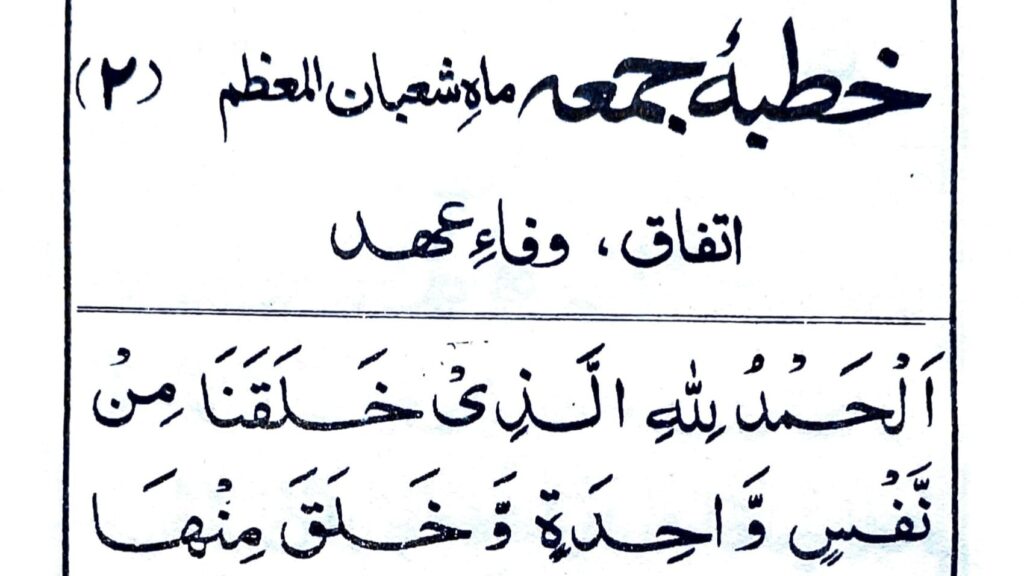 خطبۂ جمعہ ماہِ شعبان المعظم (۲)
اتفاق، وفاءِ عہد
اَلْحَمْدُ لِلّٰهِ الَّذِیْ خَلَقَنَا مِنْ
نَّفْسٍ وَّاحِدَةٍ وَّ خَلَقَ مِنْهَا